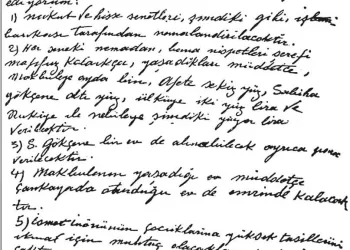 ediyorum:
1) nukut ve hisse senetleri, şimdiki gibi, iş
bankası tarafından nemalandırılacaktır.
2) Her seneki nemadan, bana nispetleri şerefi
mahfuz kaldıkça, yaşadıkları müddetçe,
Makbuleye ayda bin, Afete sekiz yüz, Sabiha
Gökçene altı yüz, ülküye iki yüz lira ve
Rukiye ile nebileye şimdiki yüzer lira
verilecektir.
3) S. Gökçene bir ev de alınabilecek ayrıca para
verilecektir.
4) Makbulenin yaşadığı ev müddetçe
Çankayada oturduğu ev de emrinde kalacak
tır.
5) ismet inönünün çocuklarına yüksek tahsillerini
ikmal için muhtaç olacakları